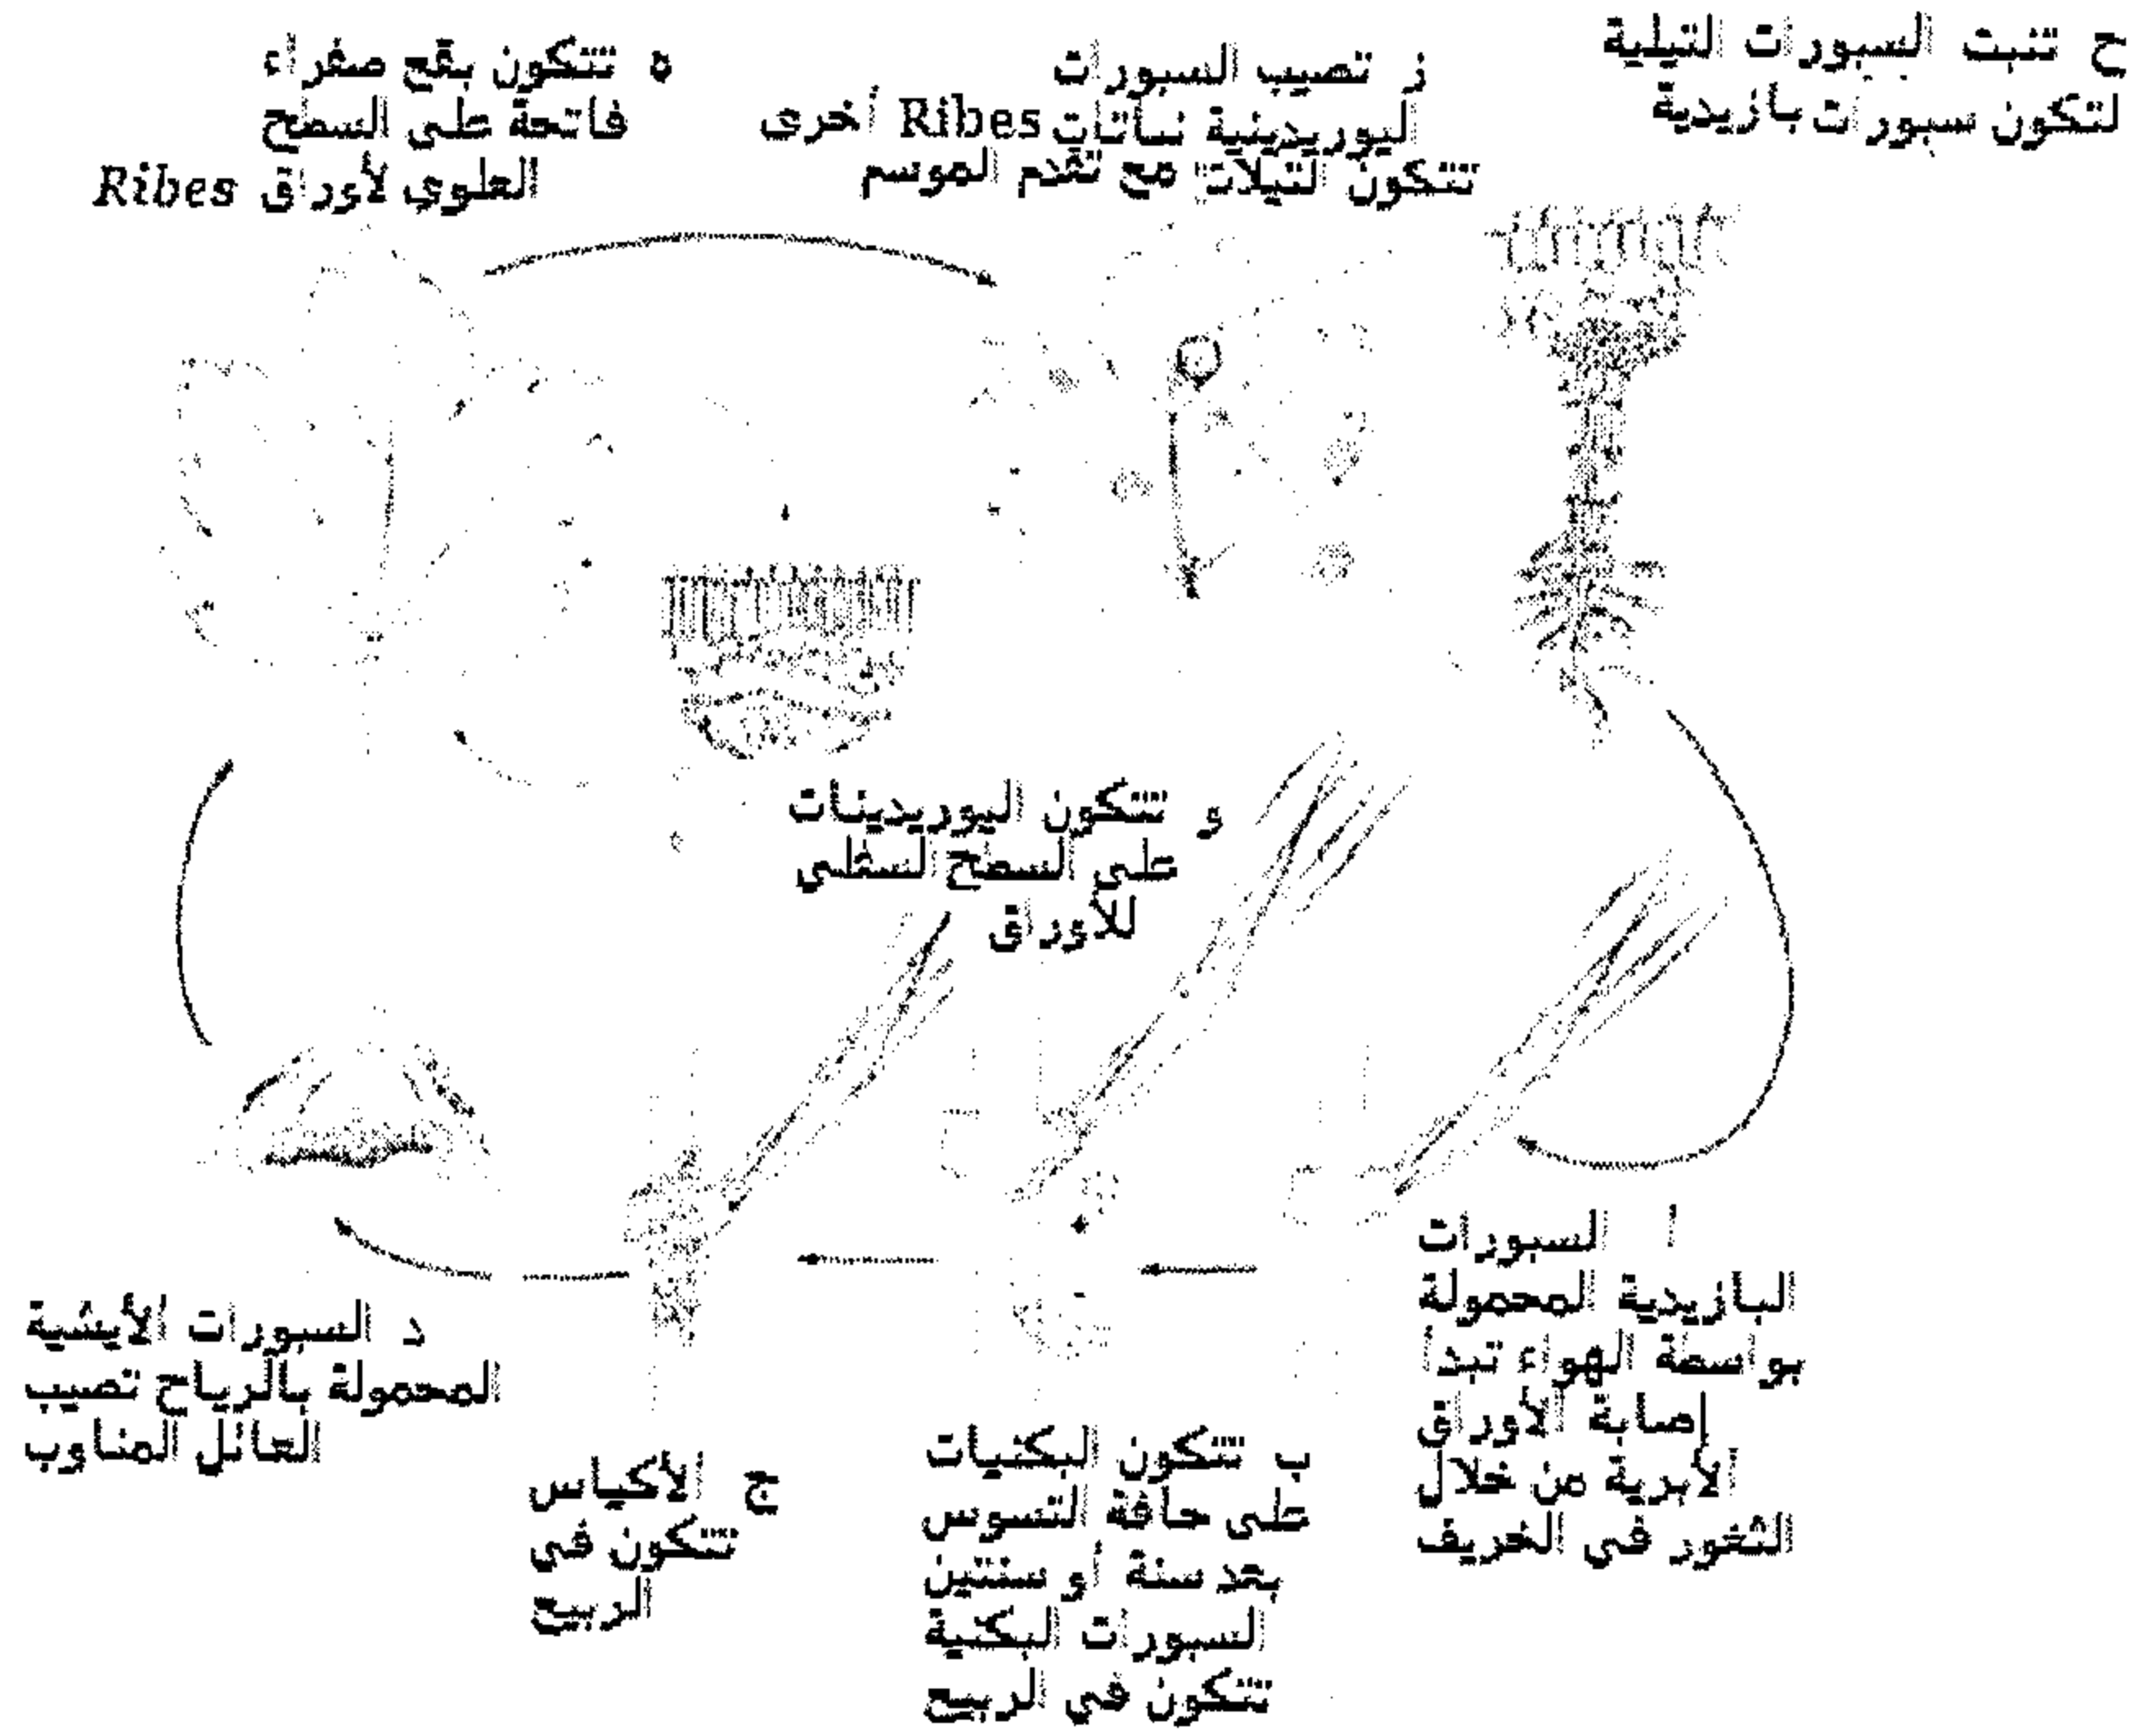 ح تنبت السبورات التيلية
لتكون سبورات بازيدية
ز تصيب السبورات
اليوريدينية نباتات Ribes أخرى
تتكون التيلات مع تقدم الموسم
ه تتكون بقع صفراء
فاتحة على السطح
العلوي لأوراق Ribes
و تتكون اليوريدينات
على السطح السفلى
للأوراق
ا السبورات
البازيدية المحمولة
بواسطة الهواء تبدأ
إصابة الأوراق
الأبرية من خلال
الثغور في الخريف
ب تتكون البكنيات
على حافة التسوس
بعد سنة أو سنتين
السبورات البكنية
تتكون في الربيع
ج الأكياس
تتكون في
الربيع
د السبورات الأيشية
المحمولة بالرياح تصيب
العائل المناوب